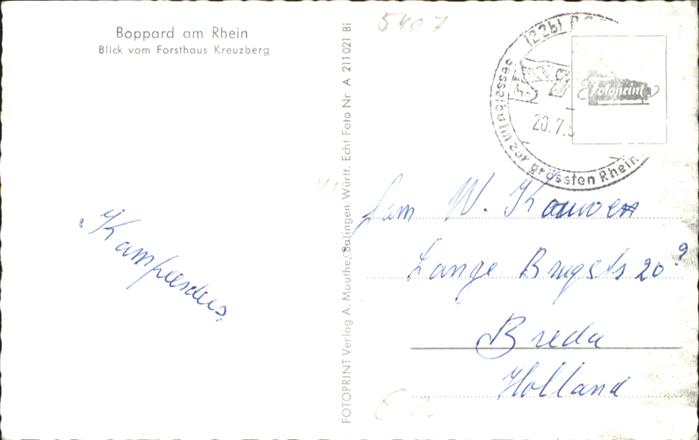 Boppard am Rhein
Blick vom Forsthaus Kreuzberg
5407
FOTOPRINT Verlag A. Mauthe, Balingen Württ. Echt Foto Nr A 211021 Bi
(22b)
zur grössten Rhein
20.7.5
Fotoprint
Kampeerders
Fam W. Kouwen
Lange Brugels 20
Breda
Holland